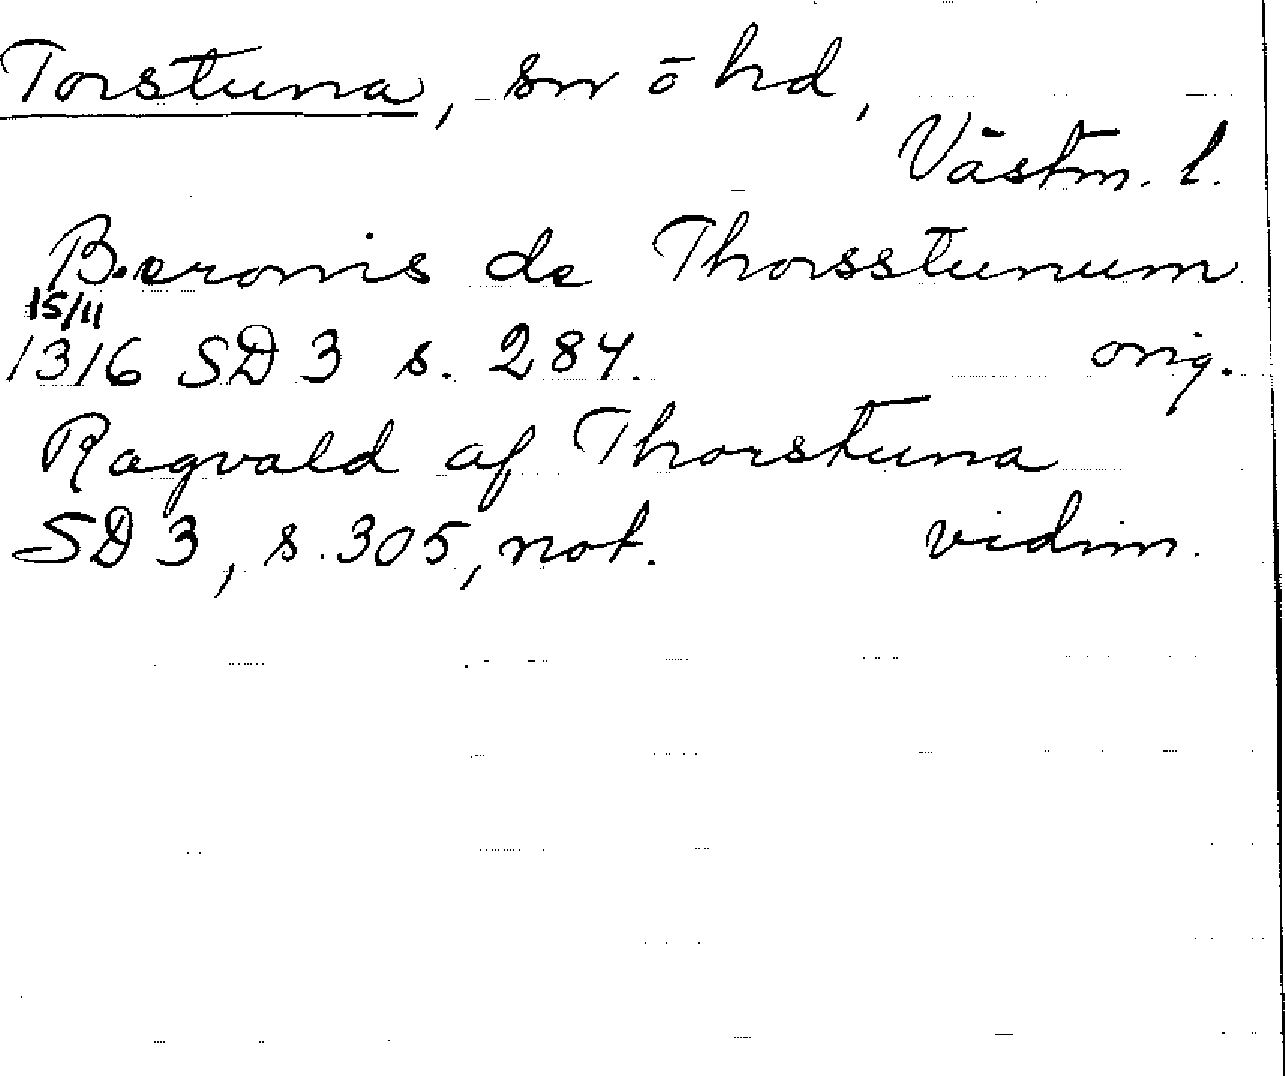 Torstuna, sn o hd,
Västm. l.
Beronis de Thorsstunum
15/11
1316 SD 3 s. 284. orig.
Ragvald af Thorstuna
SD 3, s. 305, not. vidim.